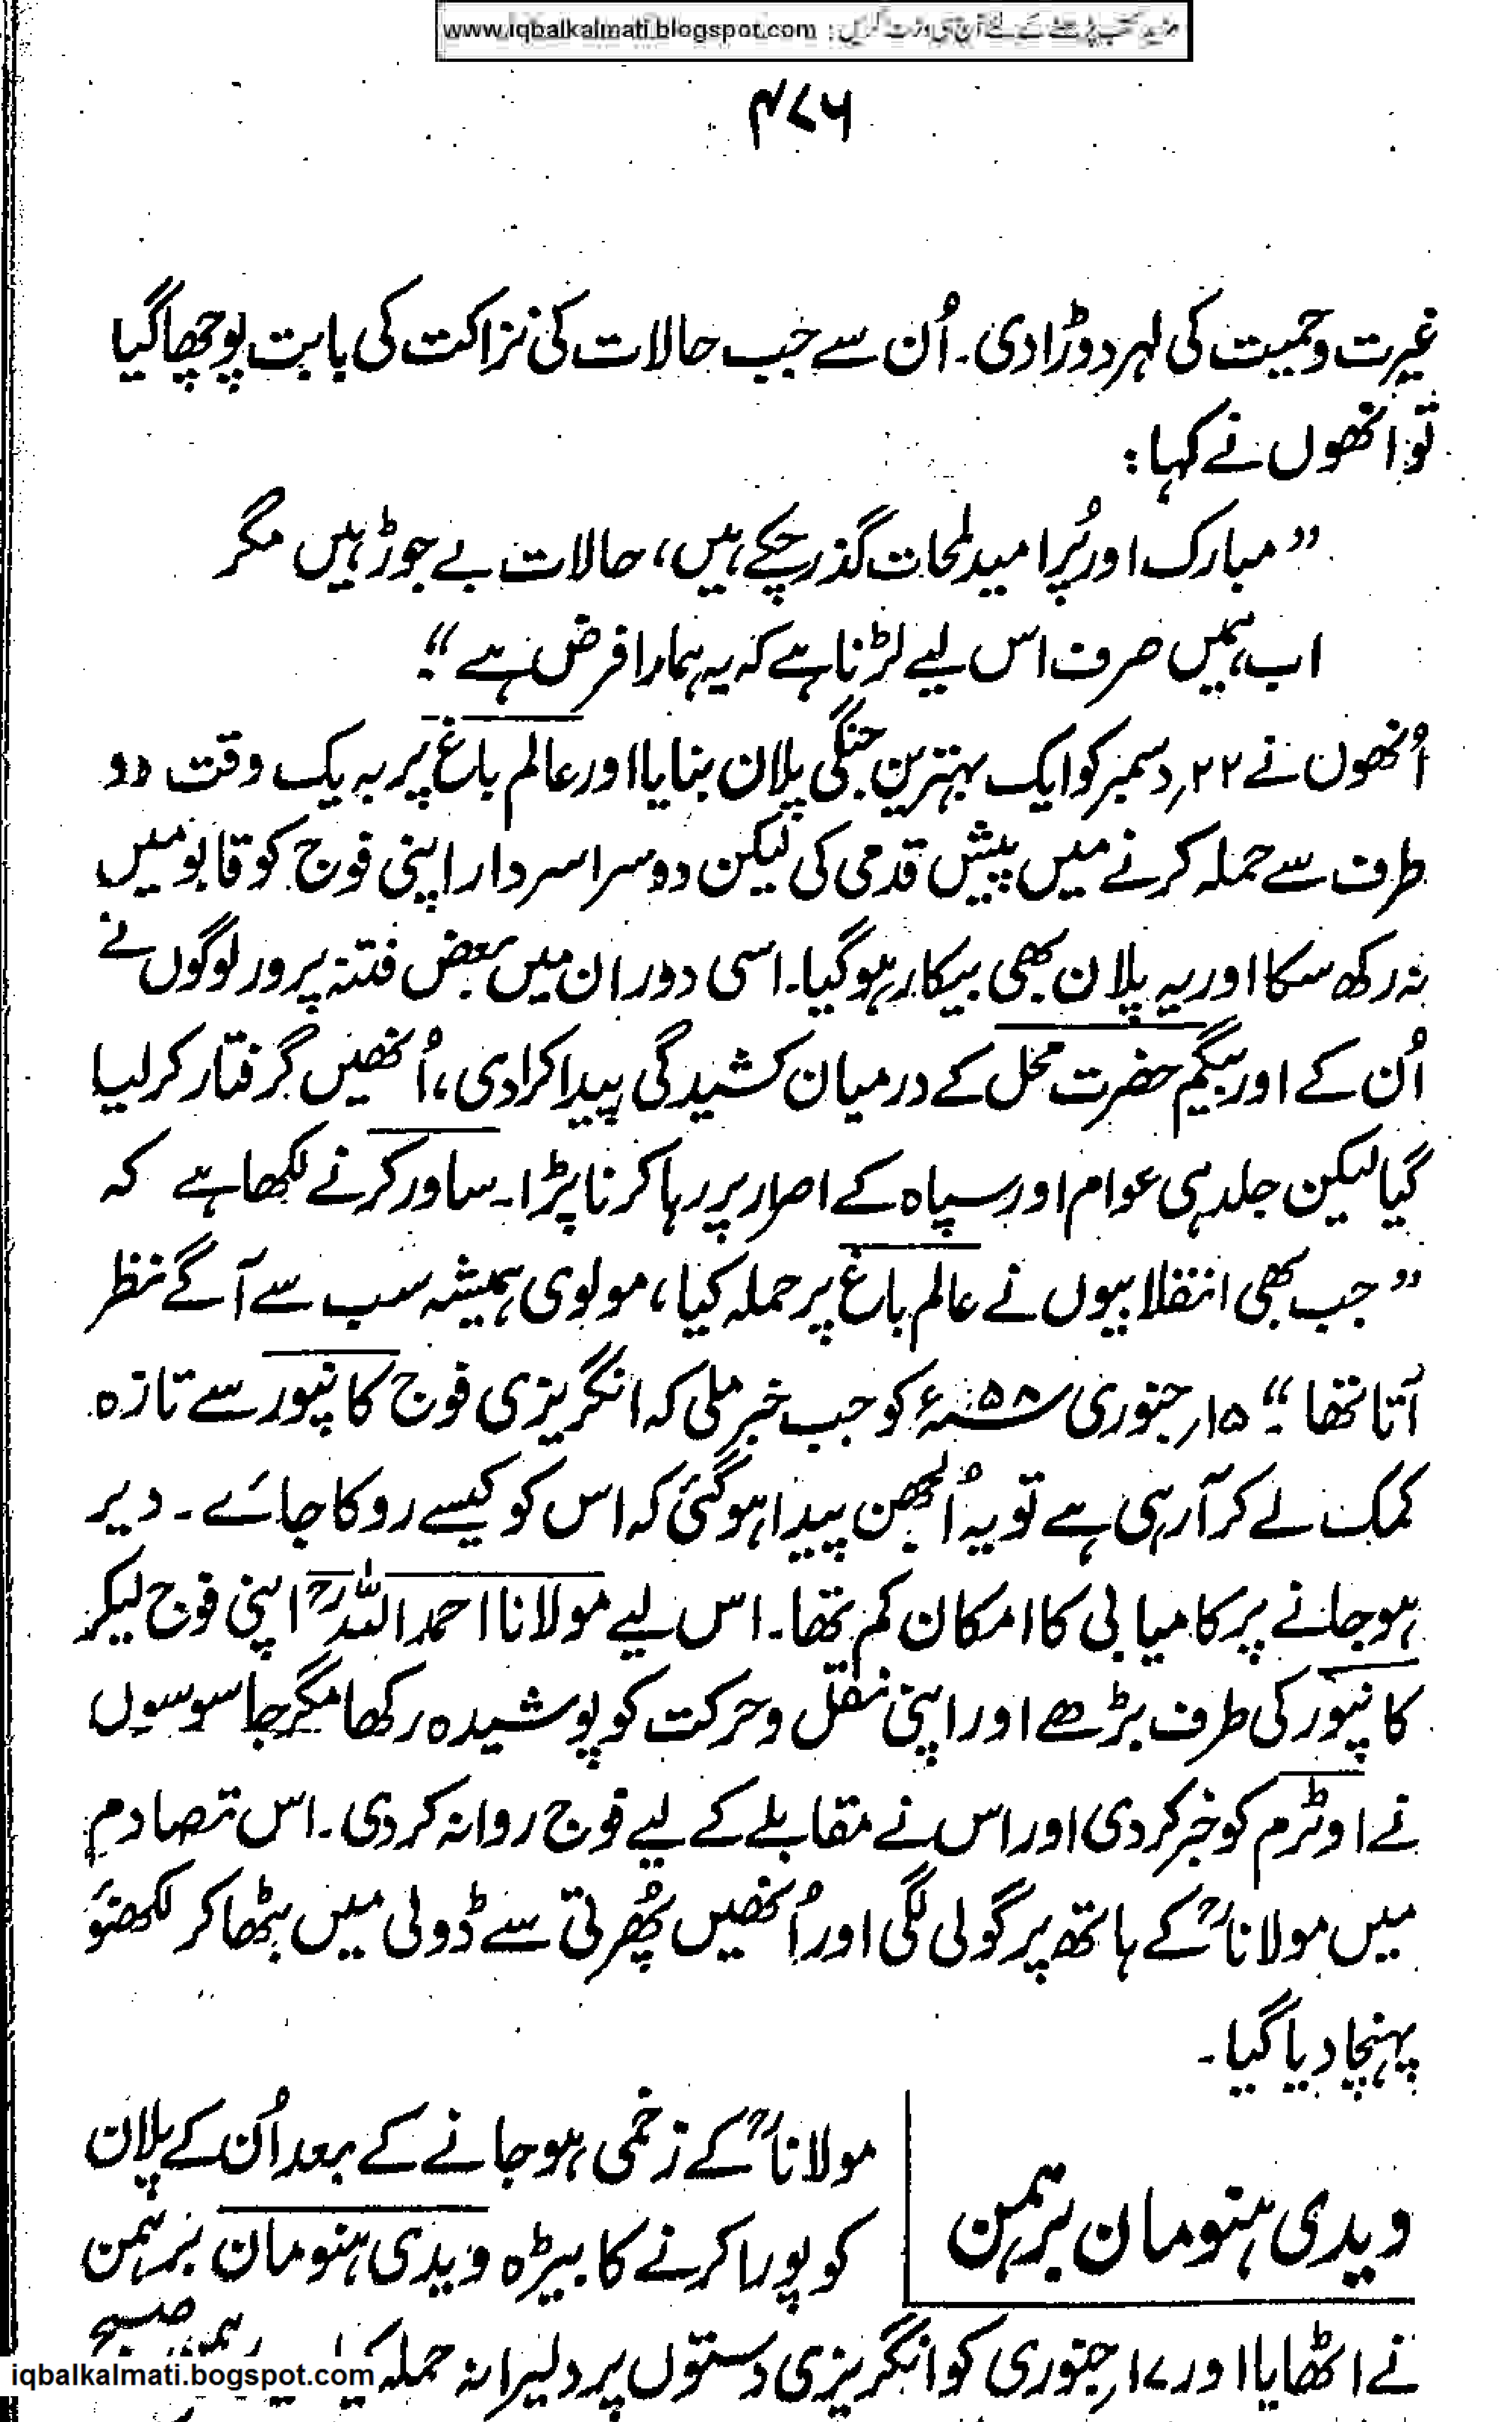 مزید کتب پڑھنے کے لئے آج ہی وزٹ کریں : www.iqbalkalmati.blogspot.com
۴۷۶
غیرت وحمیت کی لہر دوڑا دی۔ اُن سے جب حالات کی نزاکت کی بابت پوچھا گیا
تو انھوں نے کہا:
”مبارک اور پُر امید لمحات گذر چکے ہیں، حالات بے جوڑ ہیں مگر
اب ہمیں صرف اس لیے لڑنا ہے کہ یہ ہمارا فرض ہے“۔
اُنھوں نے ۲۲ر دسمبر کو ایک بہترین جنگی پلان بنایا اور عالم باغ پر بہ یک وقت دو
طرف سے حملہ کرنے میں پیش قدمی کی لیکن دوسرا سردار اپنی فوج کو قابو میں
نہ رکھ سکا اور یہ پلان بھی بیکار ہو گیا۔ اسی دوران میں بعض فتنہ پرور لوگوں نے
اُن کے اور بیگم حضرت محل کے درمیان کشیدگی پیدا کرا دی، اُنھیں گرفتار کر لیا
گیا لیکن جلد ہی عوام اور سپاہ کے اصرار پر رہا کرنا پڑا۔ ساورکر نے لکھا ہے کہ
”جب بھی انقلابیوں نے عالم باغ پر حملہ کیا، مولوی ہمیشہ سب سے آگے نظر
آتا تھا“۔ ۱۵ر جنوری ۵۸ء کو جب خبر ملی کہ انگریزی فوج کانپور سے تازہ
کمک لے کر آ رہی ہے تو یہ اُلجھن پیدا ہو گئی کہ اس کو کیسے روکا جائے۔ دیر
ہو جانے پر کامیابی کا امکان کم تھا۔ اس لیے مولانا احمد اللہؒ اپنی فوج لیکر
کانپور کی طرف بڑھے اور اپنی نقل و حرکت کو پوشیدہ رکھا مگر جاسوسوں
نے اوٹرم کو خبر کر دی اور اس نے مقابلے کے لیے فوج روانہ کر دی۔ اس تصادم
میں مولاناؒ کے ہاتھ پر گولی لگی اور اُنھیں پھُرتی سے ڈولی میں بٹھا کر لکھنؤ
پہنچا دیا گیا۔
ویدی ہنومان برہمن
مولاناؒ کے زخمی ہو جانے کے بعد اُن کے پلان
کو پورا کرنے کا بیڑہ ویدی ہنومان برہمن
نے اٹھایا اور ۱۷ر جنوری کو انگریزی دستوں پر دلیرانہ حملہ کیا صبح
iqbalkalmati.bogspot.com